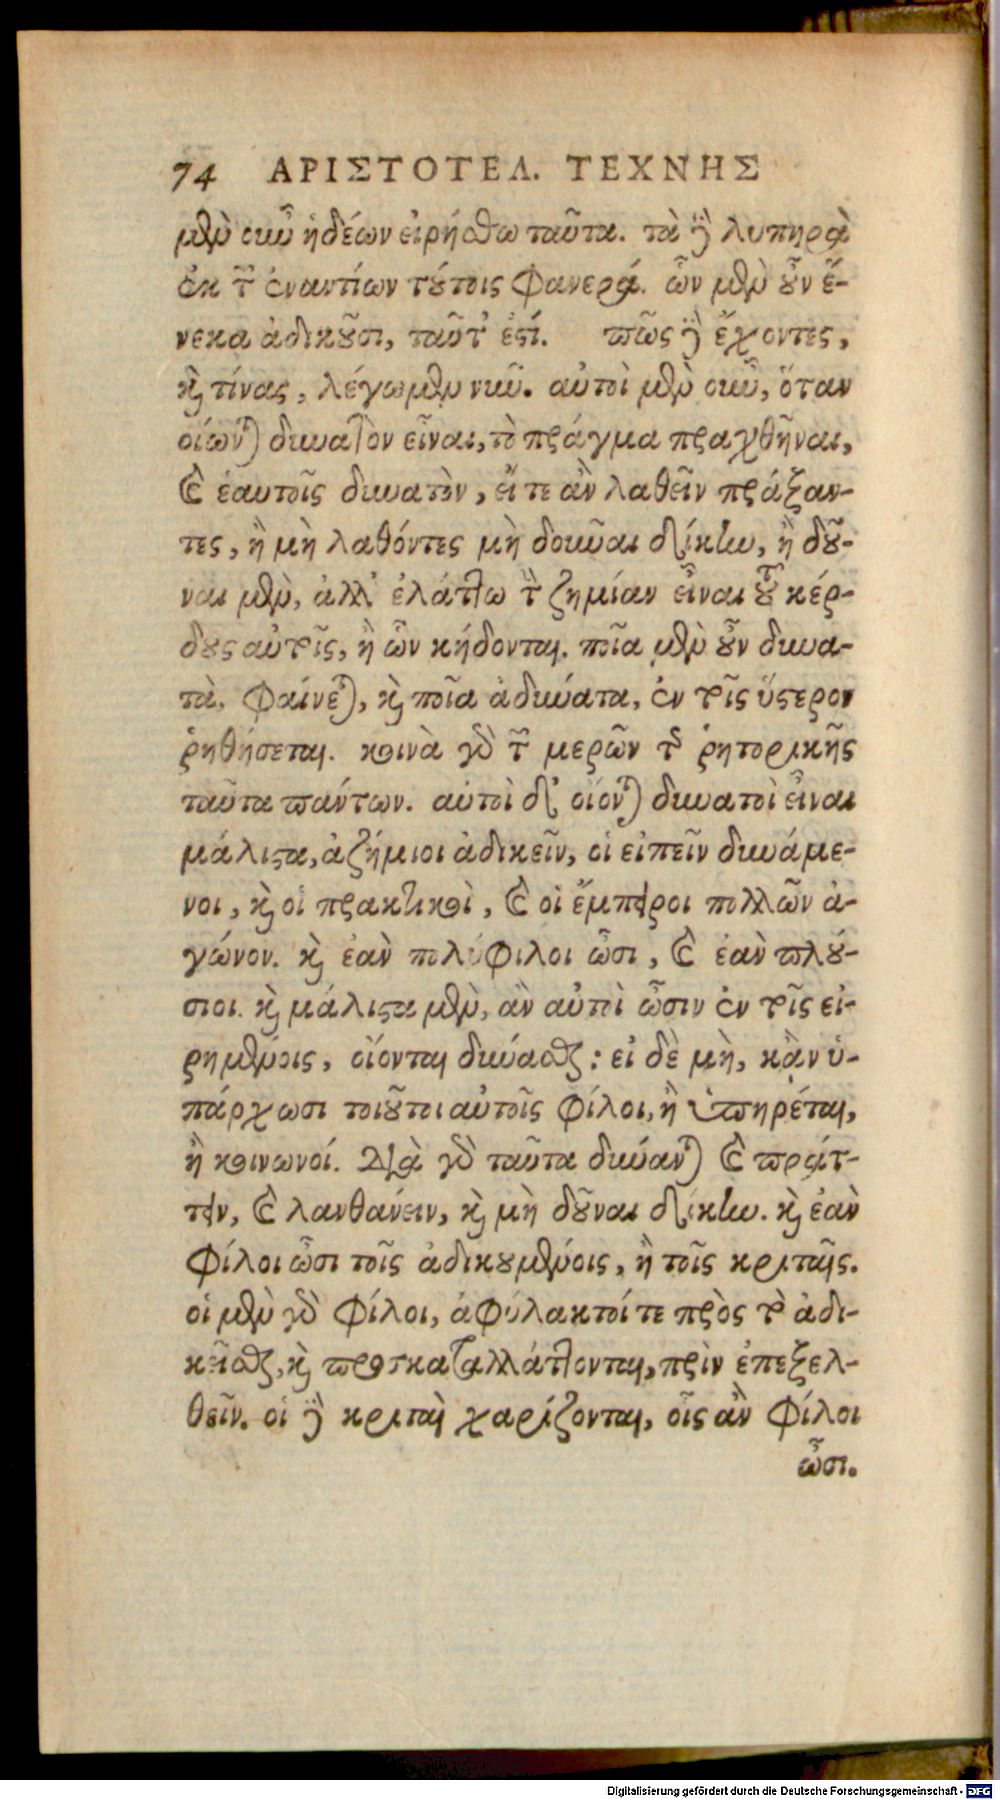 74 ΑΡΙΣΤΟΤΕΛ. ΤΕΧΝΗΣ
μὲν οὖν ἡδέων εἰρήσθω ταῦτα. τὰ δὲ λυπηρὰ
ἐκ τῶν ἐναντίων τούτοις φανερά. ὧν μὲν οὖν ἕ-
νεκα ἀδικοῦσι, ταῦτ' ἐστί. πῶς δὲ ἔχοντες,
καὶ τίνας, λέγωμεν νῦν. αὐτοὶ μὲν οὖν, ὅταν
οἴωνται δυνατὸν εἶναι, τὸ πρᾶγμα πραχθῆναι,
καὶ ἑαυτοῖς δυνατὸν, εἴτε ἂν λαθεῖν πράξαν-
τες, ἢ μὴ λαθόντες μὴ δοῦναι δίκην, ἢ δοῦ-
ναι μὲν, ἀλλ' ἐλάττω τὴν ζημίαν εἶναι τοῦ κέρ-
δους αὐτοῖς, ἢ ὧν κήδονται. ποῖα μὲν οὖν δυνα-
τὰ, φαίνεται, καὶ ποῖα ἀδύνατα, ἐν τοῖς ὕστερον
ῥηθήσεται. κοινὰ γὰρ τῶν μερῶν τῆς ῥητορικῆς
ταῦτα πάντων. αὐτοὶ δ' οἴονται δυνατοὶ εἶναι
μάλιστα, ἀζήμιοι ἀδικεῖν, οἱ εἰπεῖν δυνάμε-
νοι, καὶ οἱ πρακτικοὶ, καὶ οἱ ἔμπειροι πολλῶν ἀ-
γώνον. καὶ ἐὰν πολύφιλοι ὦσι, καὶ ἐὰν πλού-
σιοι. καὶ μάλιστα μὲν, ἂν αὐτοὶ ὦσιν ἐν τοῖς εἰ-
ρημένοις, οἴονται δύνασθαι: εἰ δὲ μὴ, κἂν ὑ-
πάρχωσι τοιοῦτοι αὐτοῖς φίλοι, ἢ ὑπηρέται,
ἢ κοινωνοί. Διὰ γὰρ ταῦτα δύνανται καὶ πράτ-
τειν, καὶ λανθάνειν, καὶ μὴ δοῦναι δίκην. καὶ ἐὰν
φίλοι ὦσι τοῖς ἀδικουμένοις, ἢ τοῖς κριταῖς.
οἱ μὲν γὰρ φίλοι, ἀφύλακτοί τε πρὸς τὸ ἀδι-
κεῖσθαι, καὶ προσκαταλλάττονται, πρὶν ἐπεξελ-
θεῖν. οἱ δὲ κριταὶ χαρίζονται, οἷς ἂν φίλοι
ὦσι.
Digitalisierung gefördert durch die Deutsche Forschungsgemeinschaft - DFG